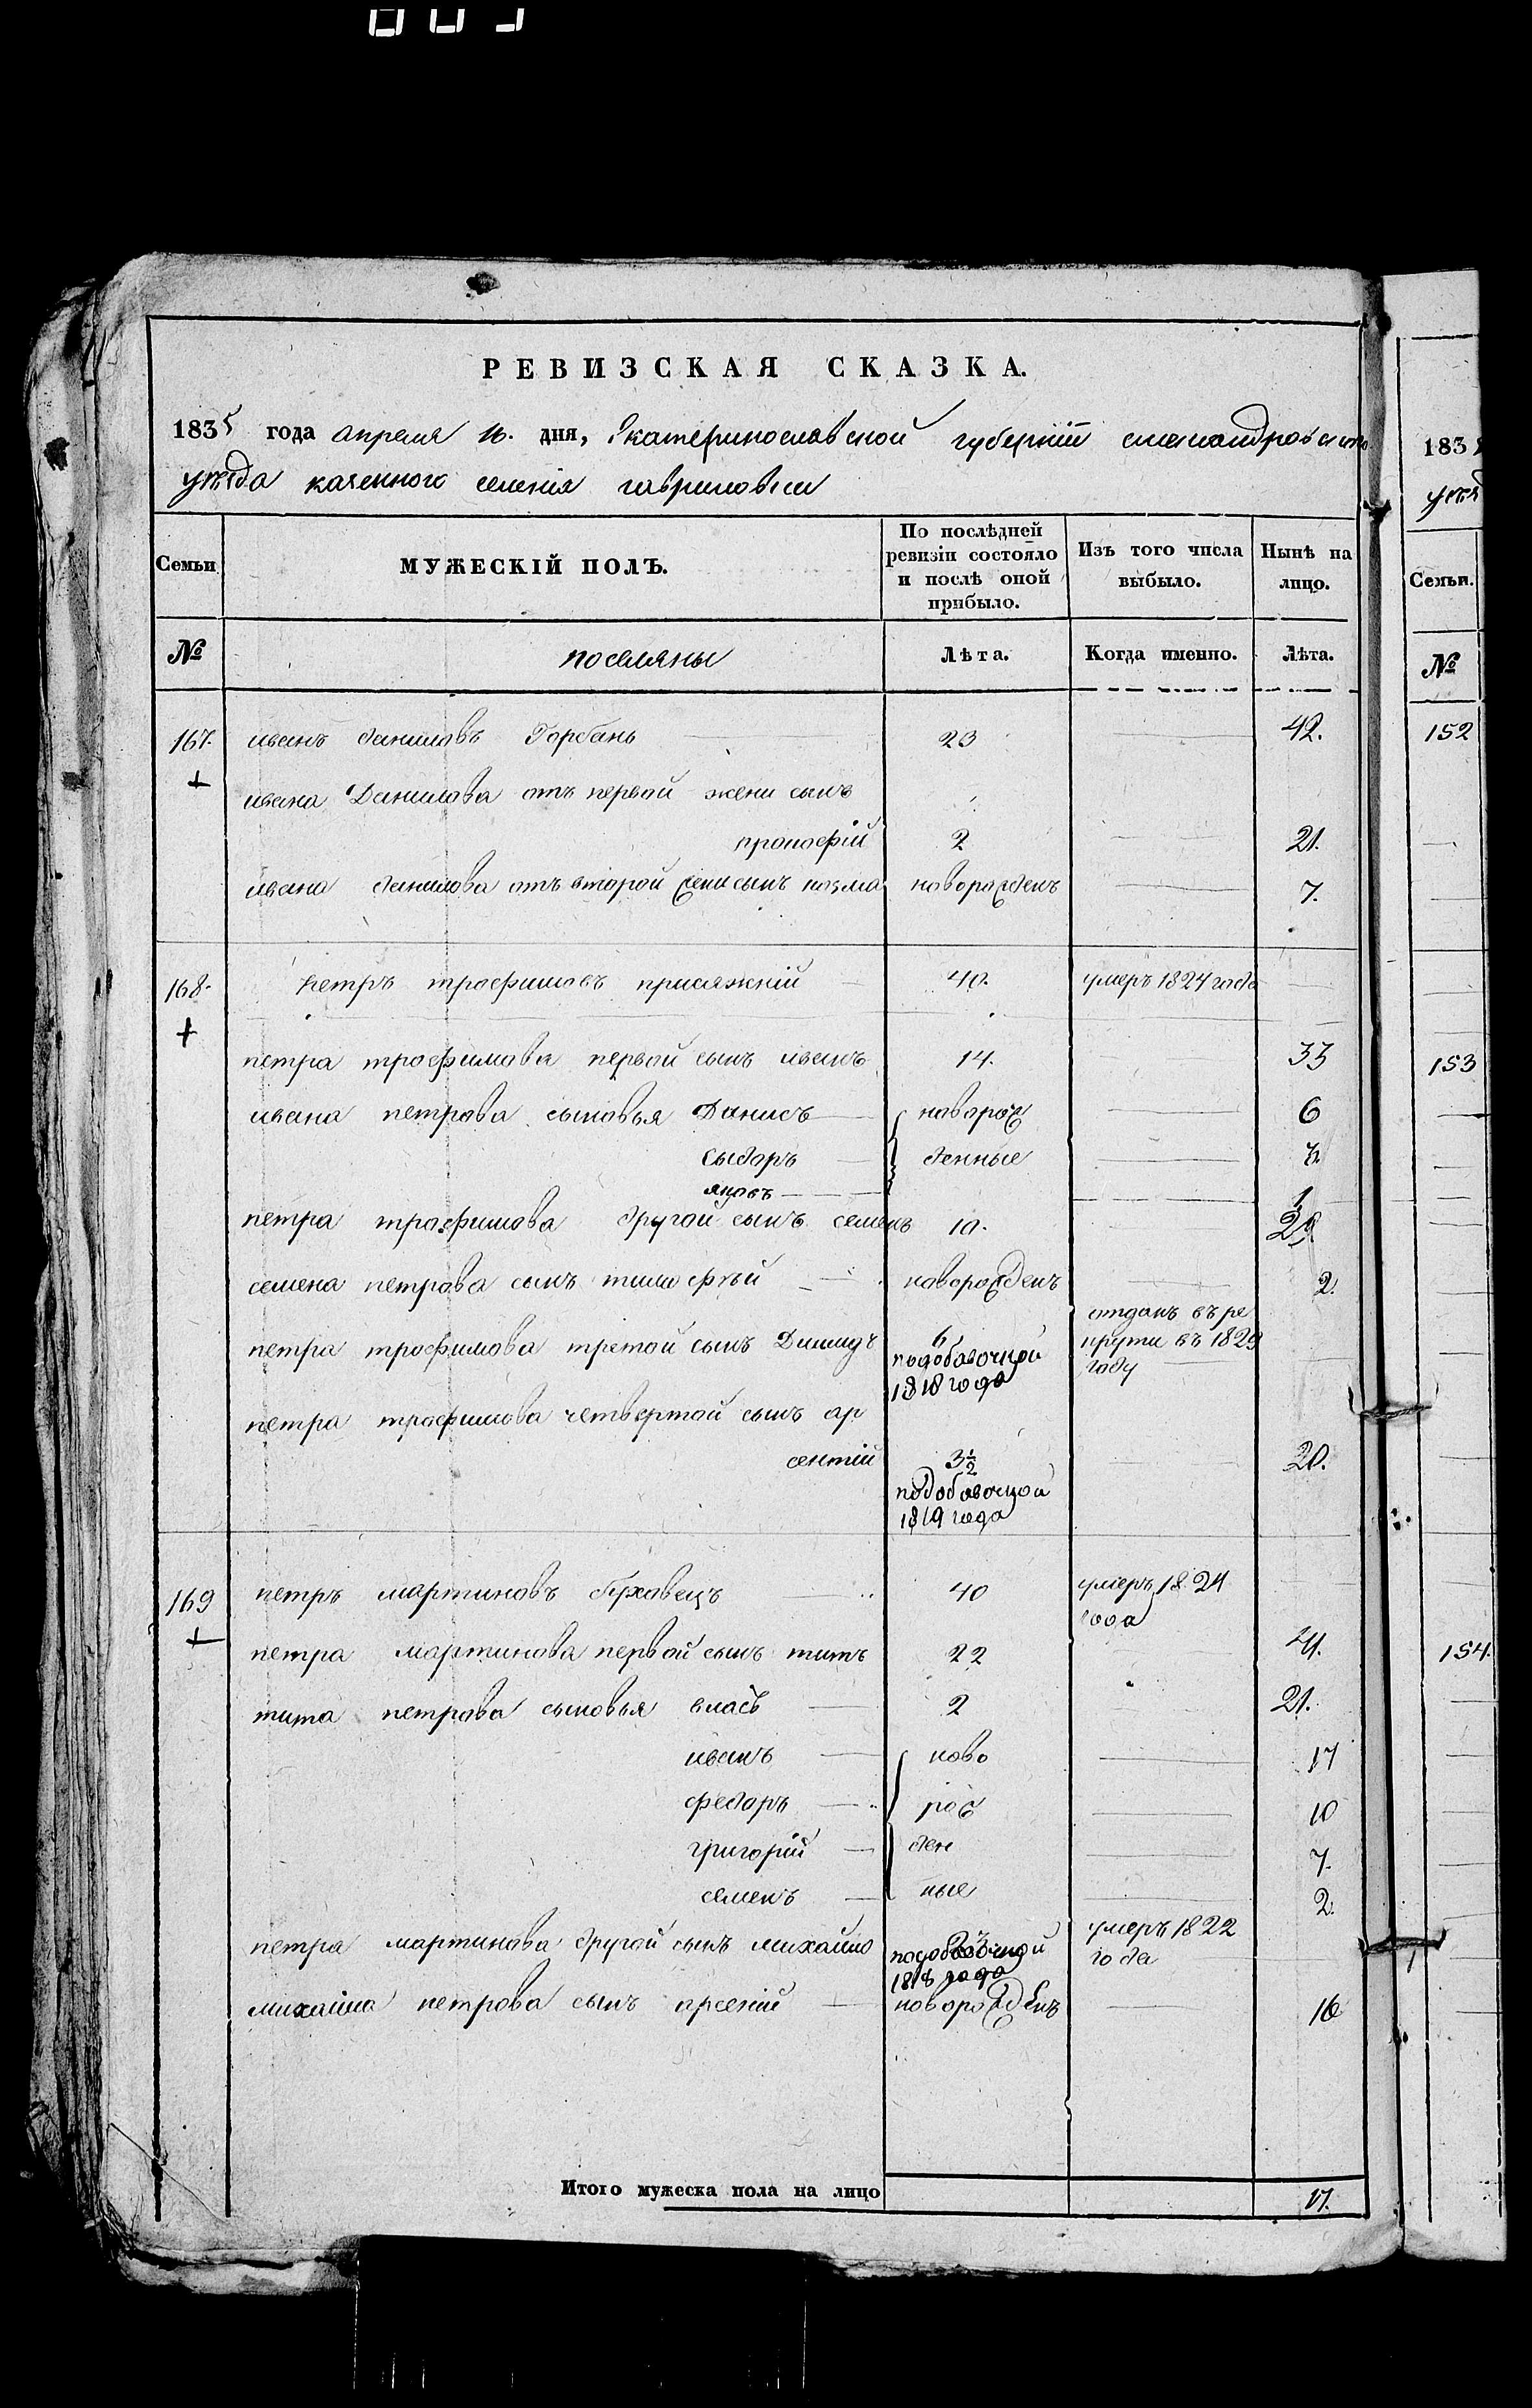 РЕВИЗСКАЯ СКАЗКА.
1835 года апреля 16. дня, Екатеринославской губернии александровского
уезда казенного селения гавриловки
Семьи
МУЖЕСКІЙ ПОЛЪ.
По послѣдней ревизіи состояло и послѣ оной прибыло.
Изъ того числа выбыло.
Нынѣ на лицо.
№ поселяны Лѣта. Когда именно. Лѣта.
167. иванъ даниловъ Горбань 23 42.
ивана Данилова отъ первой жени сынъ
прокофій 2 21.
ивана данилова отъ второй жени сынъ козма новорожденъ 7.
168. петръ трофимовъ присяжній 40. умеръ 1824 года
петра трофимова первой сынъ иванъ 14. 33
ивана петрова сыновья Данисъ новорож 6
сыдоръ денные
яковъ 1
петра трофимова другой сынъ семенъ 10. 29
семена петрова сынъ тимофѣй новорожденъ 2.
отданъ въ ре
петра трофимова третой сынъ Димидъ 6 круты въ 1829
подобавочной году
1818 года
петра трофимова четвертой сынъ ар
сентій 3½ 20.
подобавочной
1819 года
169 петръ мартиновъ 40 умеръ 1824
года
петра мартинова первой сынъ титъ 22 41.
тита петрова сыновья власъ 2 21.
иванъ ново 17
федоръ рож 10
григорій ден 7.
семенъ ные 2.
петра мартинова другой сынъ михайло умеръ 1822
подобавочной года
1818 года
михайла петрова сынъ арсеній новорожденъ 16
Итого мужеска пола на лицо 17.
1835
уѣз
Семьи.
№
152
153
154.